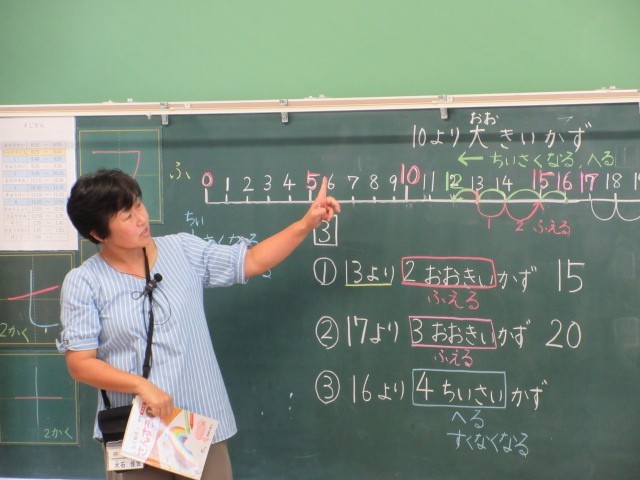 10より大きいかず
おお
← ちいさくなる へる
ふ
0 1 2 3 4 5 6 7 8 9 10 11 12 13 14 15 16 17 18
1 2 ふえる
ちい
3
① 13より 2おおきい かず 15
ふえる
② 17より 3おおきい かず 20
ふえる
③ 16より 4ちいさい かず
へる
すくなくなる
2かく
2かく